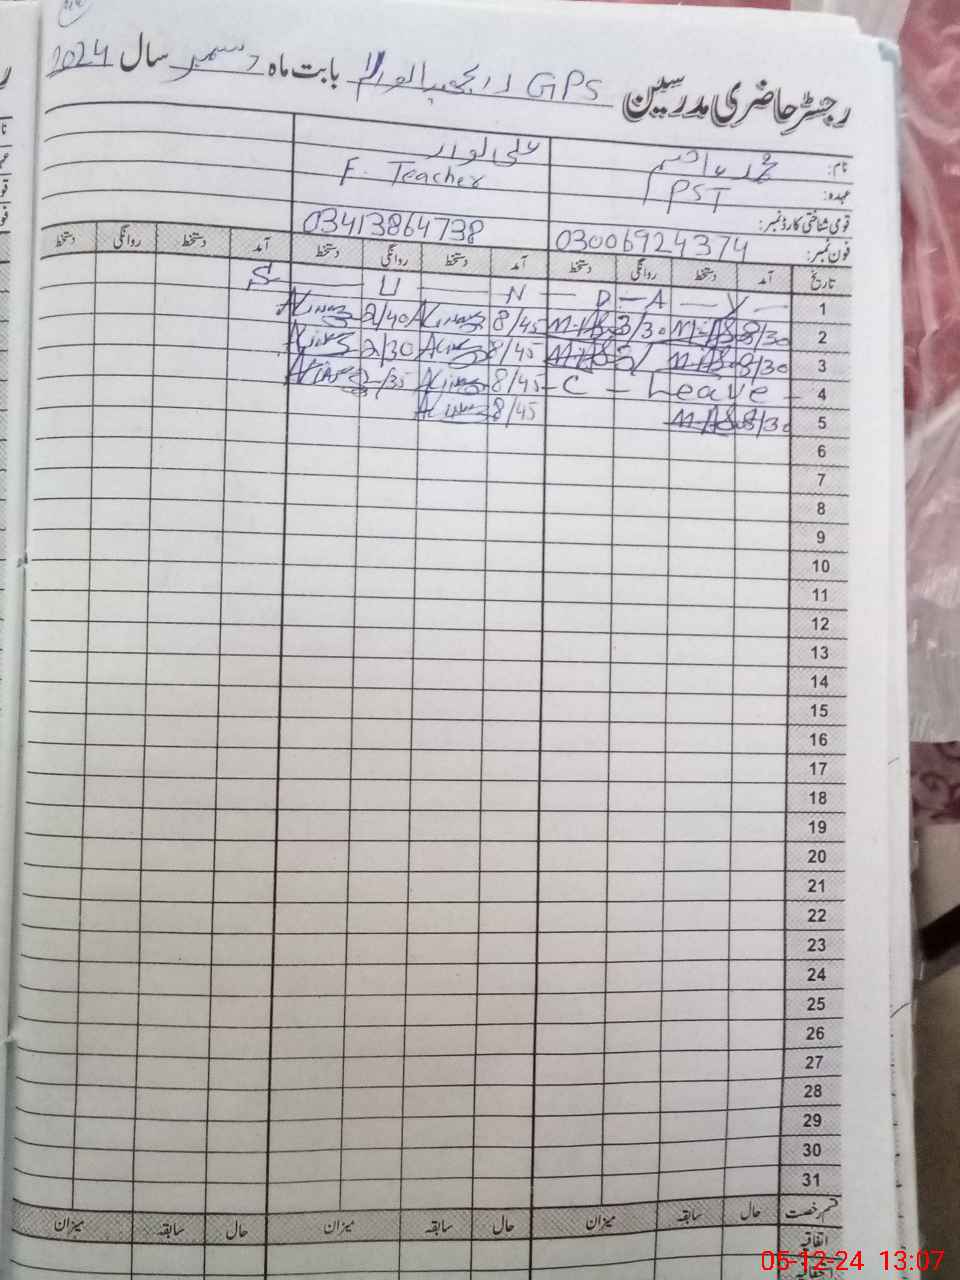 رجسٹر حاضری مدرسین GPS بابت ماہ دسمبر سال 2024
نام: علی نواز
عہدہ: PST F. Teacher
قومی شناختی کارڈ نمبر:
فون نمبر: 03006924374 03413864738
تاریخ آمد دستخط روانگی دستخط آمد دستخط روانگی دستخط آمد دستخط روانگی دستخط
1 S U N D A Y
2 8/30 3/30 8/45 2/40
3 8/30 8/45 2/30
4 C - Leave - 8/45 2/35
5 8/30 8/45
6
7
8
9
10
11
12
13
14
15
16
17
18
19
20
21
22
23
24
25
26
27
28
29
30
31
قسم رخصت حال سابقہ میزان حال سابقہ میزان حال سابقہ میزان
اتفاقیہ
05-12-24 13:07